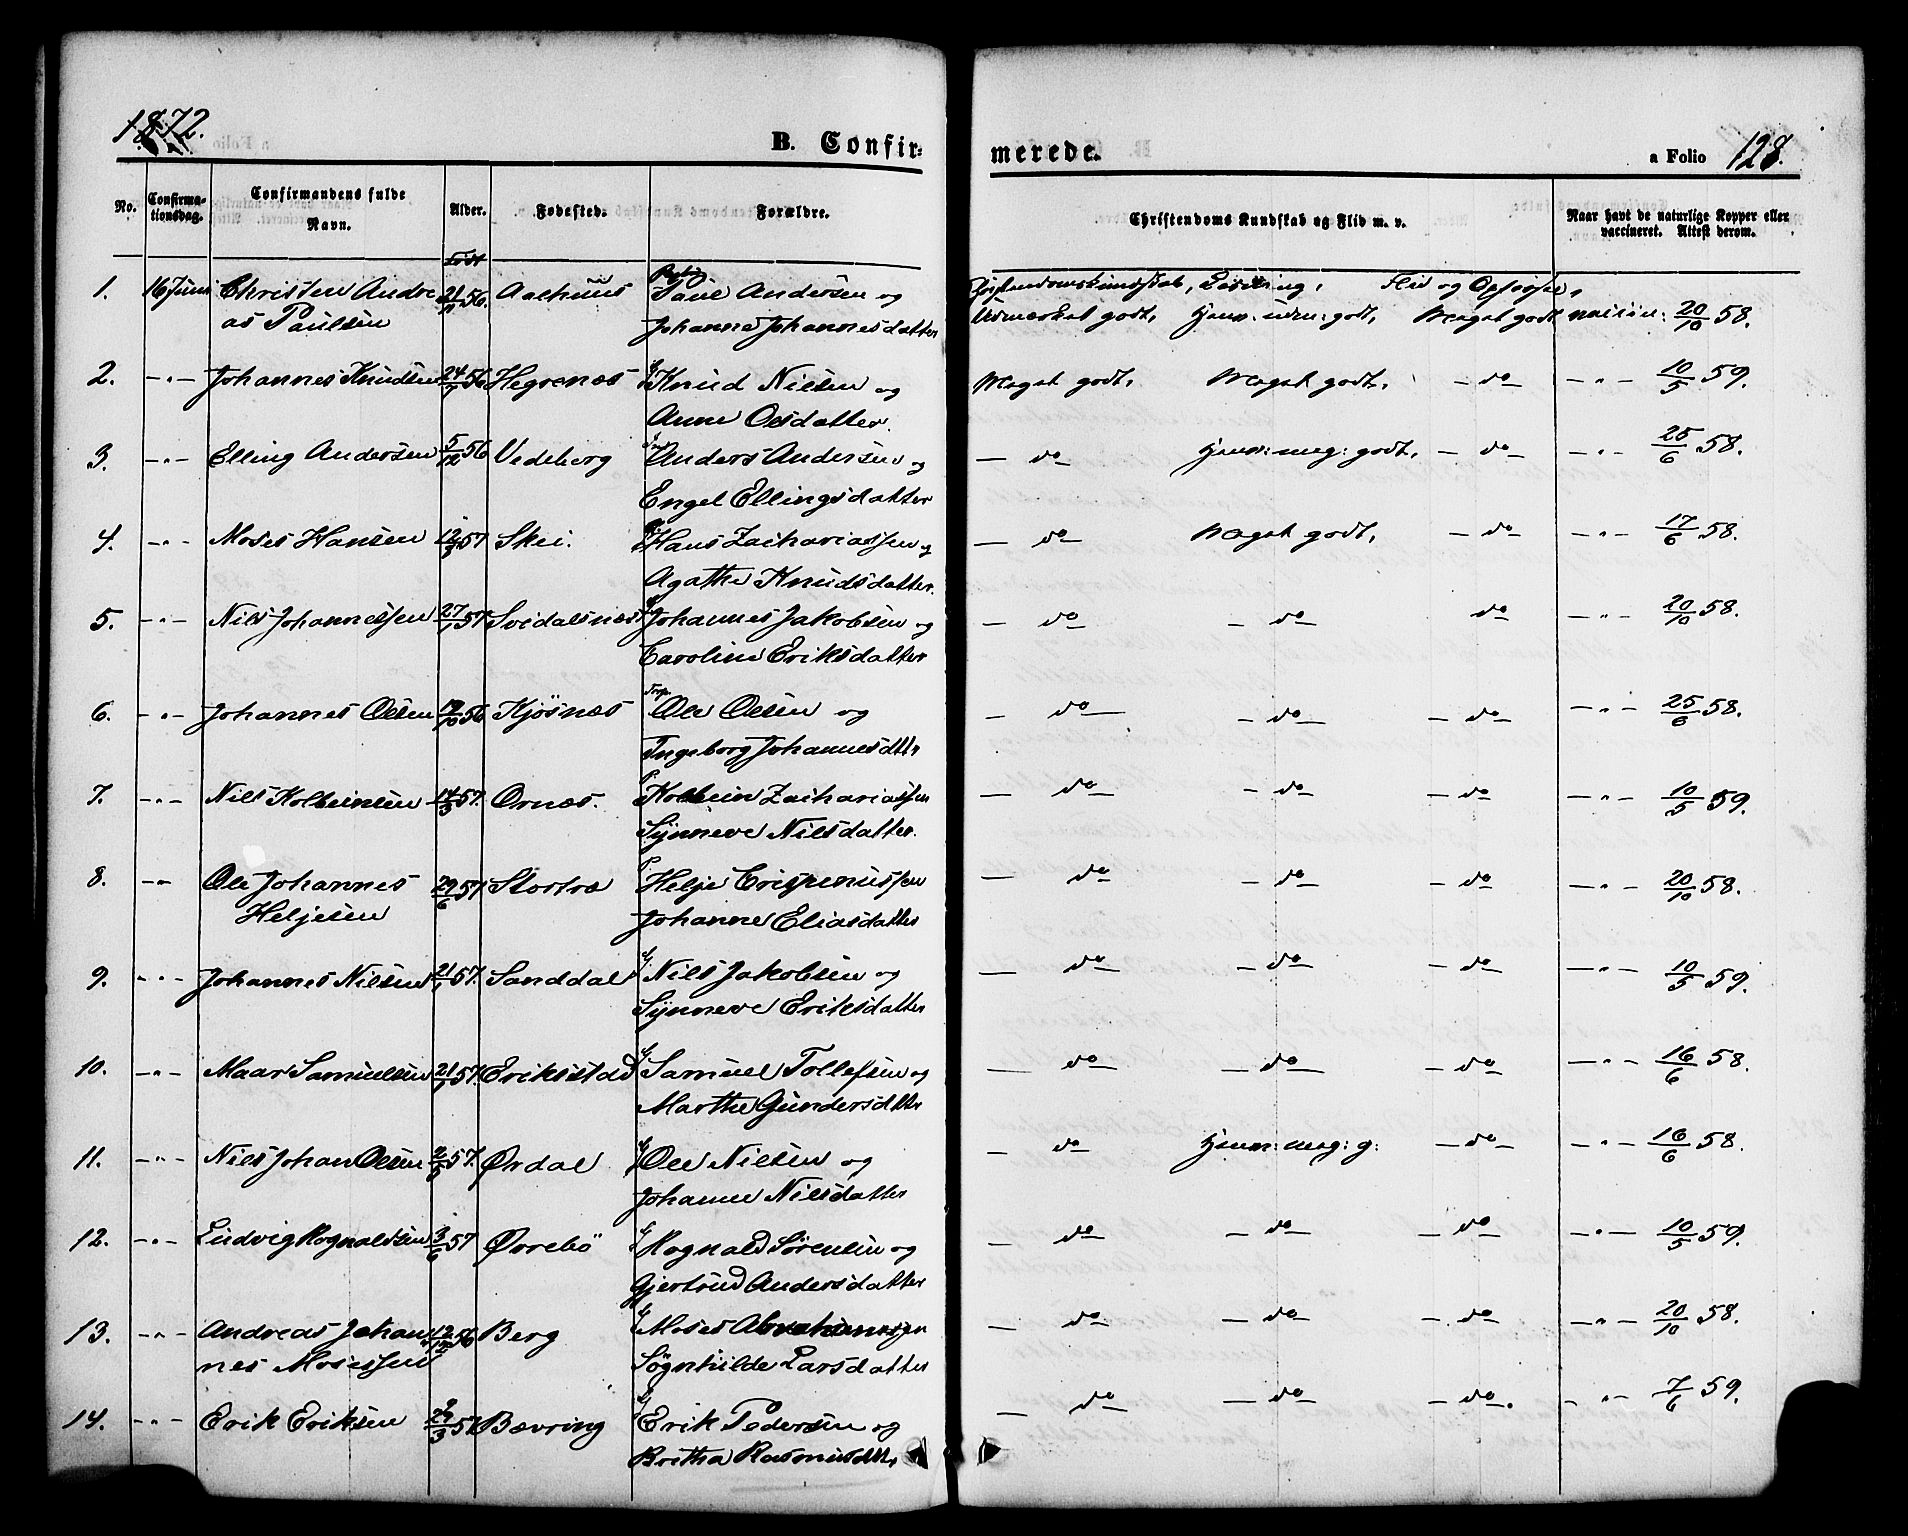 1872.
B. Confir-
merede.
a Folio 128.
No. Confirma-tionsdag. Confirmandens fulde Navn. Alder. Fødested. Forældre. Christendoms Kundskab og Flid m. v. Naar havt de naturlige Kopper eller vaccineret. Attest derom.
Født
1. 16 Juni Christen Andre 56. Aarhuus Paul Andersen og Christendomskundskab, Læsning, Flid og Opførsel,
as Paulsen Johanne Johannesdatter Udmærket godt, Henn: udm: godt, Meget godt vaccin: 20/10 58.
2. -"- Johannes Knudsen 24/7 56 Hegrenæs Knud Nilsen og Meget godt, Meget godt, - do - -"- 10/5 59.
Anne Olsdatter.
3. -"- Elling Andersen 5/12 56 Vedeberg Anders Andersen og - do Henn: meg: godt, - do - -"- 25/6 58.
Engel Ellingsdatter
4. -"- Moses Hansen 12/3 57 Skei. Hans Zachariassen og - do Meget godt, - do - -"- 17/6 58.
Agathe Knudsdatter.
5. -"- Nils Johannessen 27/1 57 Svidalsnæs Johannes Jakobsen og - do - do do -"- 20/10 58.
Caroline Eriksdatter
6. -"- Johannes Olsen 19/10 56 Kjøsnæs Ole Olsen og - do - do - do -"- 25/6 58.
Ingeborg Johannesdttr
7. -"- Nils Kolbeinsen 14/3 57. Ornæs. Kolbein Zachariassen - do - do - do -"- 10/5 59.
Synneve Nilsdatter.
8. -"- Ole Johannes 29/6 57 Stortræ Helje Crispinussen - do - do - do -"- 20/10 58.
Heljesen Johanne Eliasdatter
9. -"- Johannes Nilsen 21/1 57. Sanddal Nils Jakobsen og - do - do - do -"- 10/5 59.
Synneve Eriksdatter
10. -"- Maar Samuelsen 21/1 57. Eriksstad Samuel Tollefsen og - do - do - do -"- 16/6 58.
Marthe Gundersdttr
11. -"- Nils Johan Olsen 2/5 57. Ørdal Ole Nielsen og - do Henn: meg: g: - do -"- 16/6 58.
Johanne Nilsdatter
12. -"- Ludvig Rognaldsen 3/6 57 Øvrebø Rognald Sørensen og - do - do - do -"- 10/5 59.
Gjertrud Andersdatter
13. -"- Andreas Johan 12/12 56 Berg Moses Abrahamsen - do - do - do -"- 20/10 58.
nes Mosessen Søgnhilde Larsdatter
14. -"- Erik Eriksen 29/3 57 Bævring Erik Pedersen og - do - do - do. -"- 7/6 59.
Britha Rasmusdttr